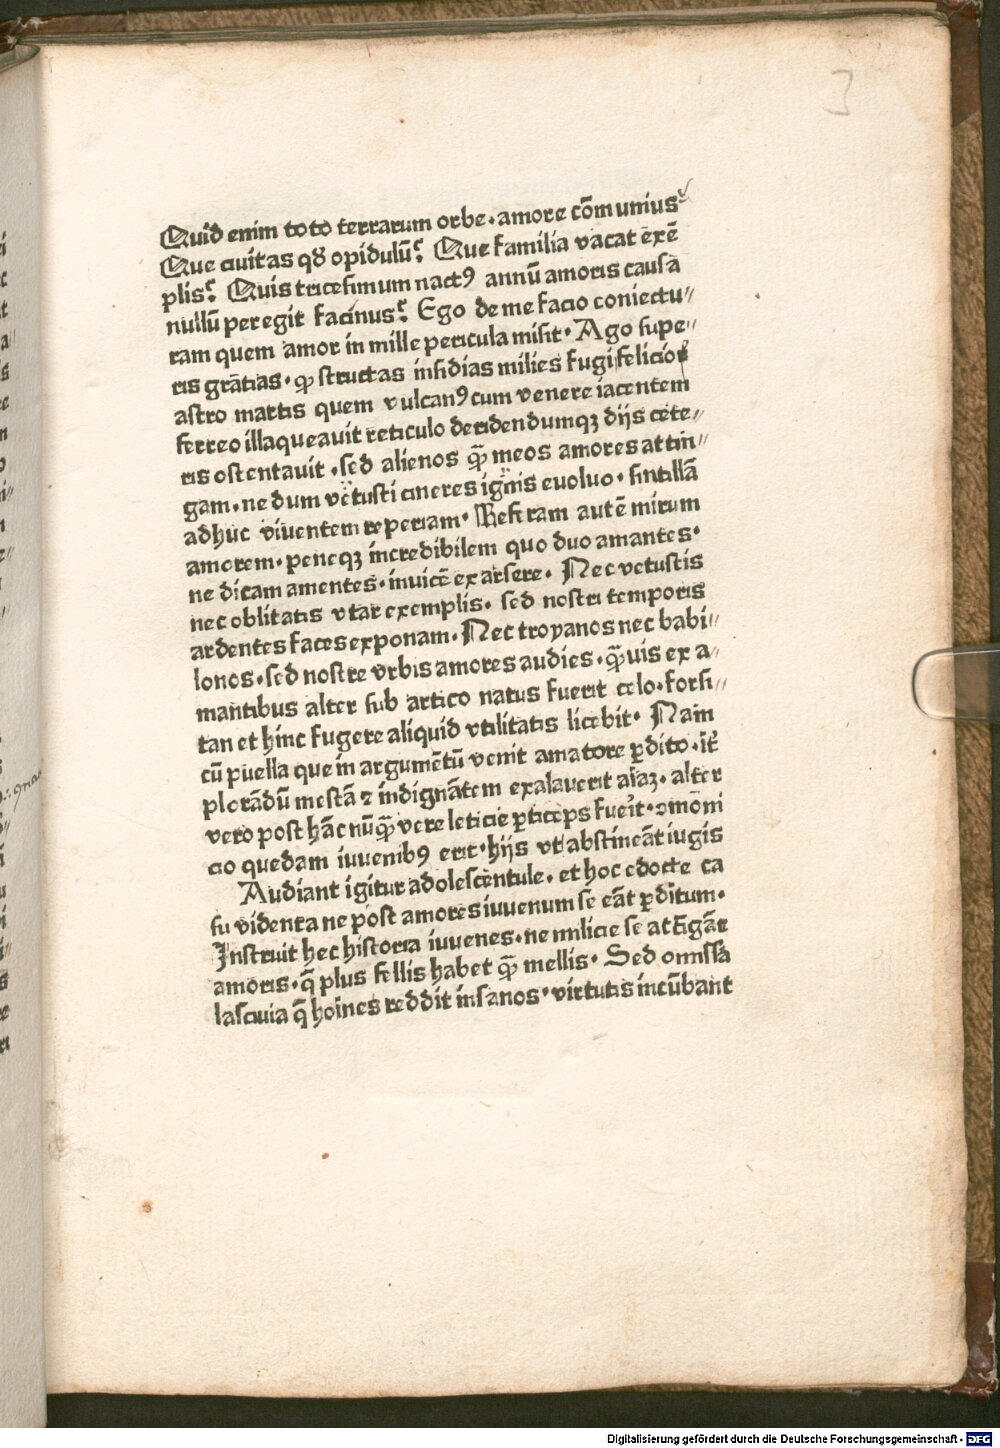 3
Quid enim toto terrarum orbe · amore cōmunius?
Que ciuitas qď opidulū? Que familia vacat exē
plis? Quis tricesimum nactꝰ annū amoris causa
nullū peregit facinus? Ego de me facio coniectu//
ram quem amor in mille pericula misit · Ago supe//
ris grātias · ꝙ structas insidias milies fugi felicior
astro martis quem vulcanꝰ cum venere iacentem
ferreo illaqueauit reticulo deridendumqꝫ dijs cete//
ris ostentauit · sed alienos ꝙ̄ meos amores attin//
gam · ne dum vetusti cineres ignis euoluo · sintillā
adhuc viuentem reperiam · Referam autē mirum
amorem · peneqꝫ incredibilem quo duo amantes ·
ne dicam amentes · inuicē exarsere · Nec vetustis
nec oblitatis vtar exemplis · sed nostri temporis
ardentes faces exponam · Nec troyanos nec babi//
lonos · sed nostre vrbis amores audies · ꝙ̄uis ex a//
mantibus alter sub artico natus fuerit celo · forsi//
tan et hinc fugere aliquid vtilitatis licebit · Nam
cū puella que in argumētū venit amatore ꝑdito · iť
plorādū mestā ⁊ indignātem exalauerit aīaꝫ · alter
vero post hāc nūꝙ̄ vere leticie ꝑticeps fuerit · ꝯmōni
cio quedam iuuenibꝰ erit · hijs vt abstineāt iugis
Audiant igitur adolescentule · et hoc edocte ca
su videnta ne post amores iuuenum se eāt ꝑditum ·
Instruit hec historia iuuenes · ne milicie se accīgāt
amoris · q̄ plus fellis habet ꝙ̄ mellis · Sed omissa
lasciuia q̄ hoīnes reddit insanos · virtutis incūbant
Digitalisierung gefördert durch die Deutsche Forschungsgemeinschaft - DFG